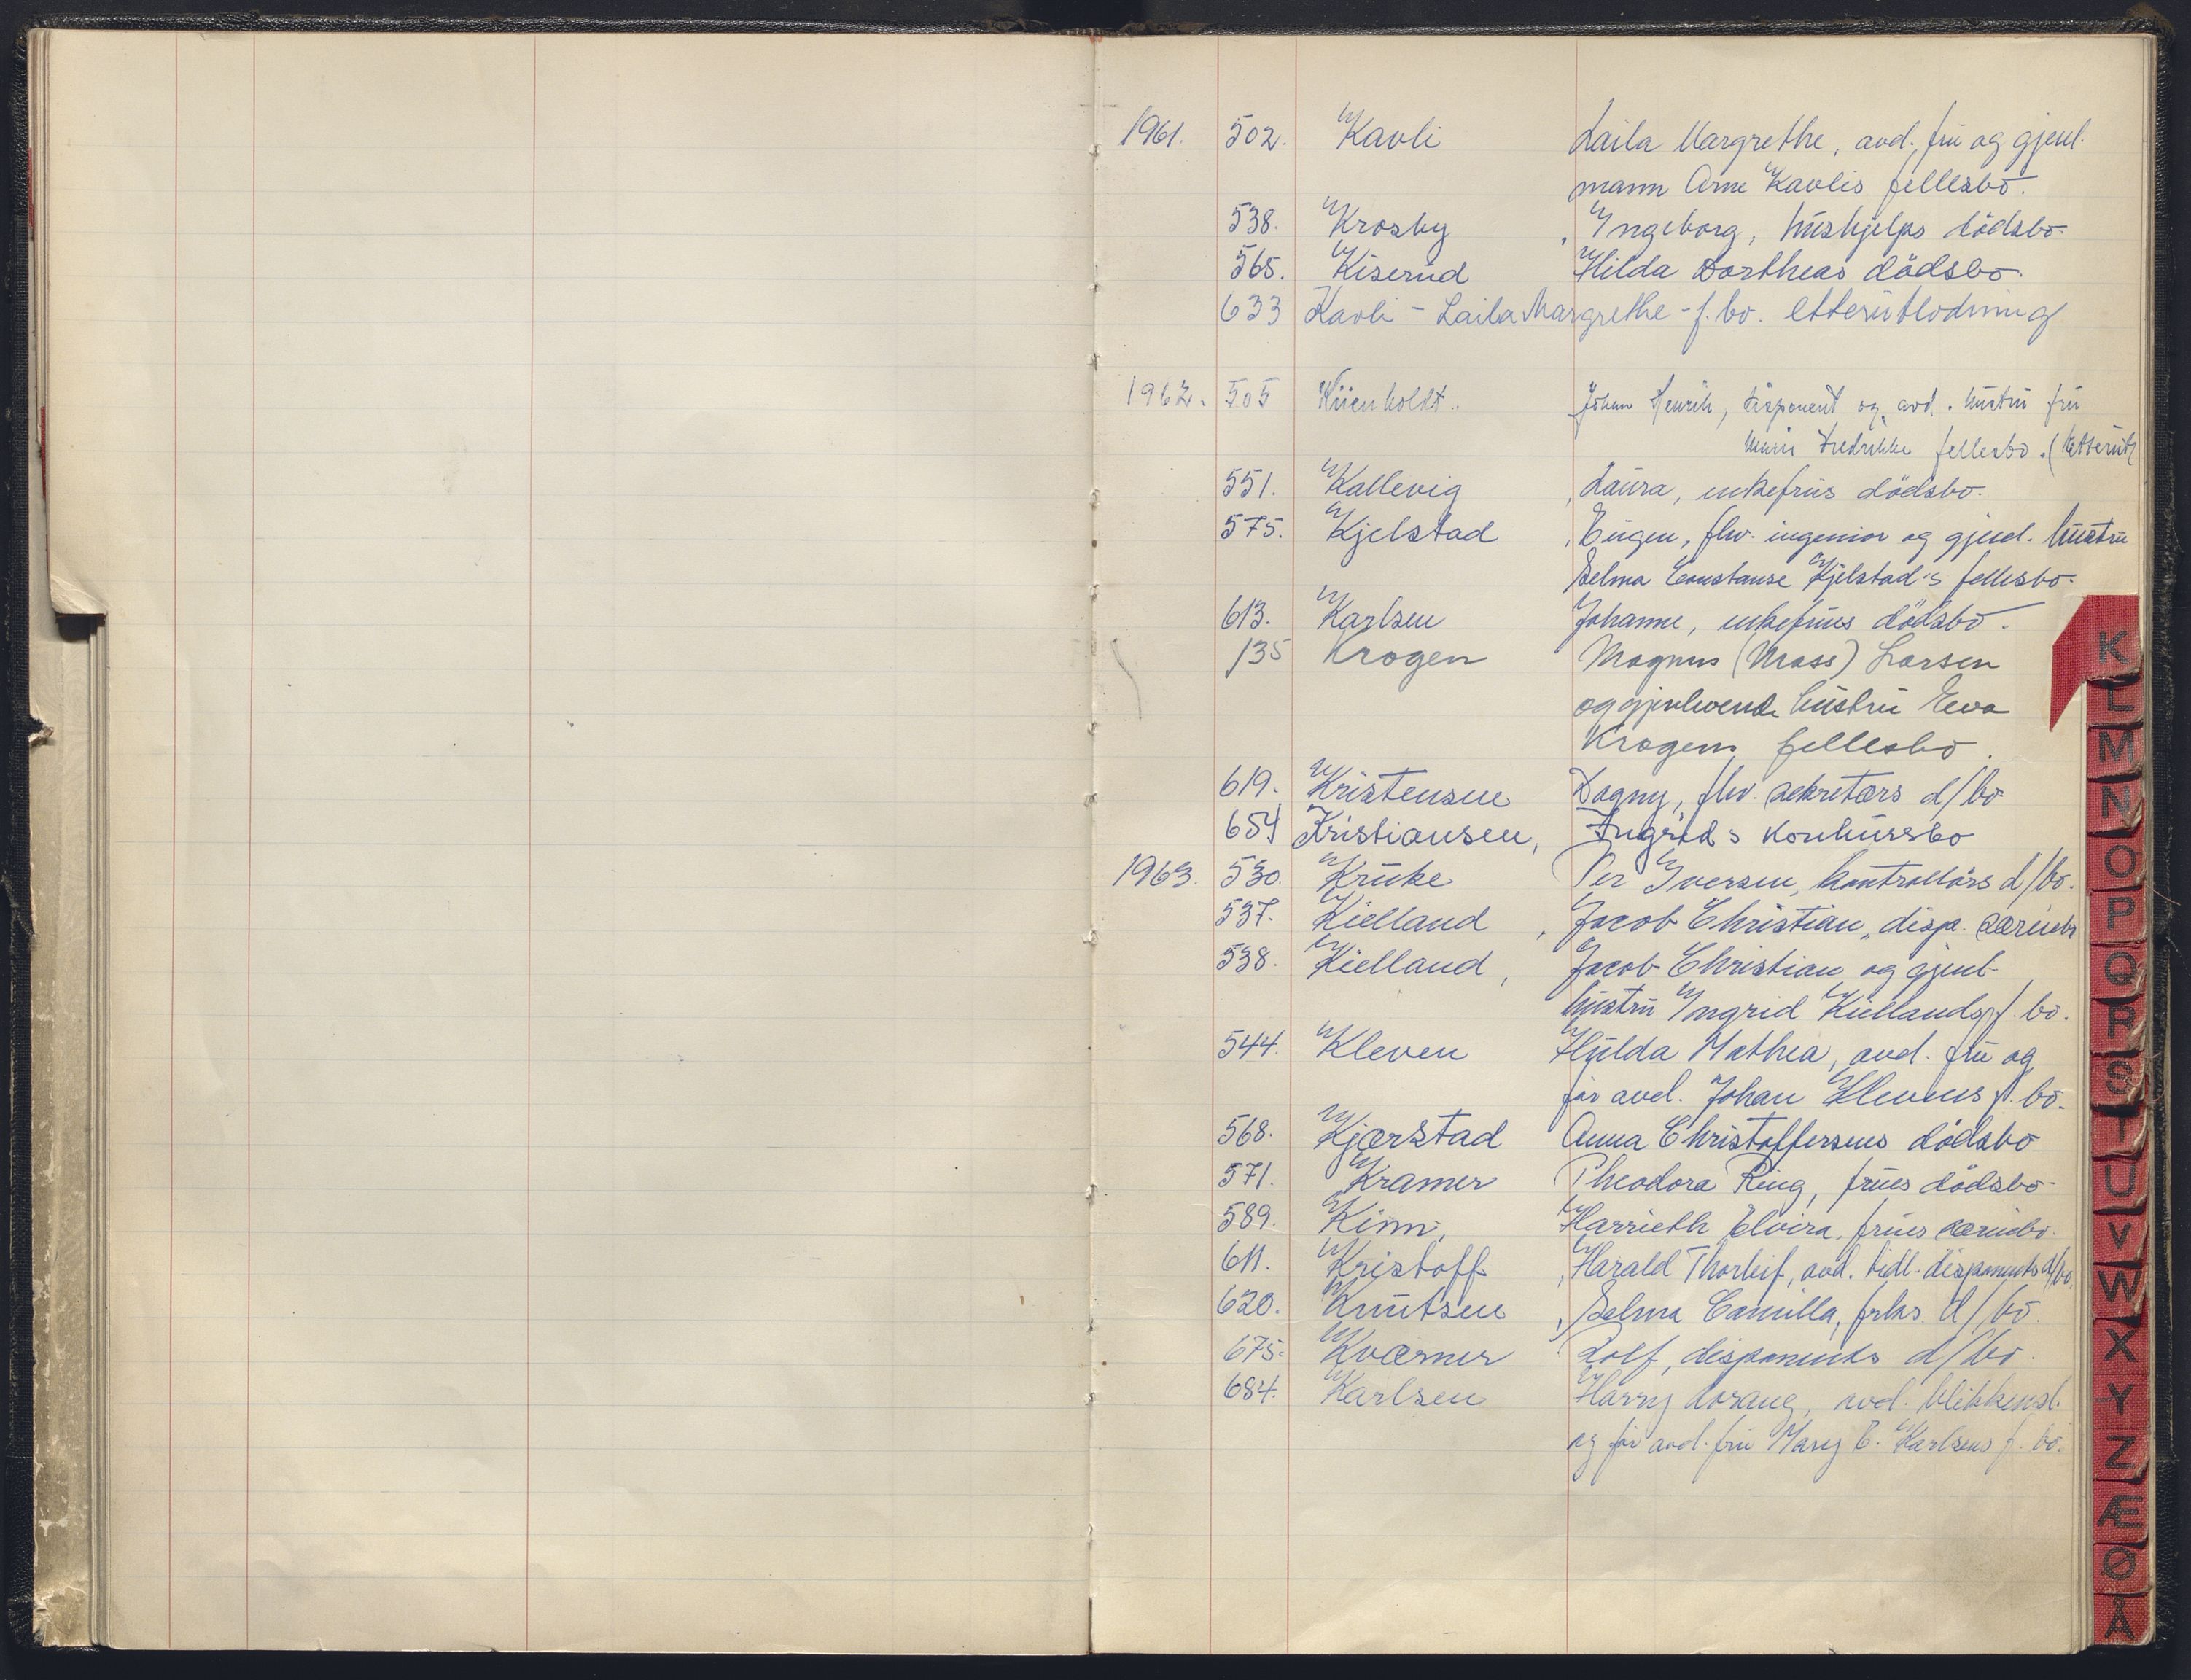 1961. 502. Kavli Laila Margrethe, avd. fru og gjenl.
mann Arne Kavlis fellesbo.
538. Krosby , Ingeborg, hushjelps dødsbo.
565. Kiserud Hilda Dortheas dødsbo.
633 Kavli - Laila Margrethe - f. bo. etterutlodning
1962. 505 Küenholdt. Johan Henrik, disponent og avd. hustru fru
Marie Fredrikke fellesbo. (Etterutl
551. Kallevig , Laura, enkefrus dødsbo.
575. Kjelstad , Eugen, fhv. ingeniør og gjenl. hustru
Selma Constanse Kjelstad's fellesbo.
613. Karlsen Johanne, enkefrus dødsbo.
135 Krogen Magnus (Mass) Larsen
og gjenlevende hustru Eva
Krogens fellesbo.
619. Kristensen Dagny, fhv. sekretærs d/bo
654 Kristiansen, Ingrids konkursbo
1963. 530. Kruke Per Iversen, kontrollørs d/bo.
537. Kielland , Jacob Christian, disp. særeiebo
538. Kielland, Jacob Christian og gjenl.
hustru Ingrid Kiellands f. bo.
544. Kleven Hulda Mathea, avd. fru og
før avd. Johan Klevens f. bo.
568. Kjærstad Anna Christoffersens dødsbo
571. Kramer Theodora Ring, frues dødsbo.
589. Kinn, Harrieth Elvira, frues særeiebo.
611. Kristoff , Harald Thorleif, avd. tidl. disponents d/bo.
620. Knutsen , Selma Camilla, frks. d/bo.
675. Kværner Rolf, disponents d/bo.
684. Karlsen Harry Lorang, avd. blikkensl.
og før avd. fru Mary E. Karlsens f. bo.
K
L
M
N
O
P
Q
R
S
T
U
V
W
X
Y
Z
Æ
Ø
Å